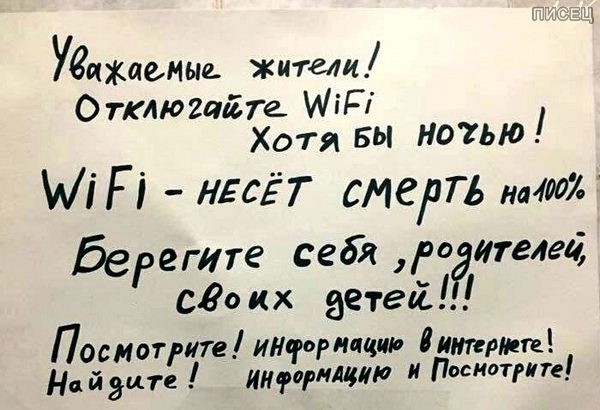 ПИСЕЦ
Уважаемые жители!
Отключайте WiFi
Хотя бы ночью!
WiFi - несёт смерть на 100%
Берегите себя, родителей,
своих детей!!!
Посмотрите! информацию в интернете!
Найдите! информацию и Посмотрите!